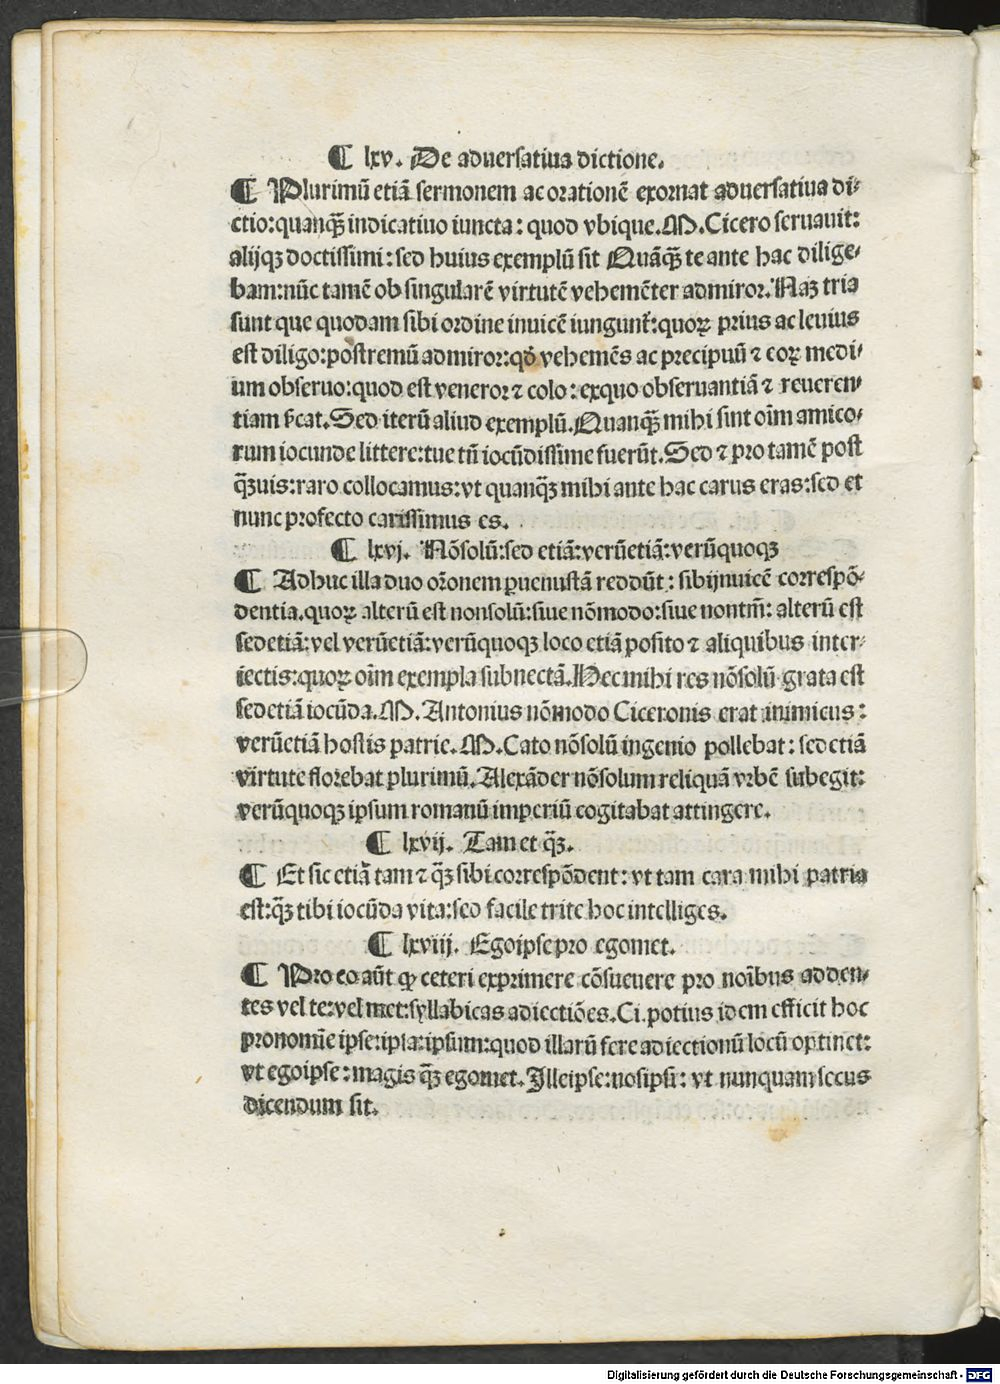 ¶ lxv. De aduersatiua dictione.
¶ Plurimū etiā sermonem ac orationē exornat aduersatiua di⸗
ctio:quanqȝ̄ indicatiuo iuncta: quod vbique.M.Cicero seruauit:
alijqȝ doctissimi: sed huius exemplū sit Quāqȝ̄ te ante hac dilige⸗
bam:nūc tamē ob singularē virtutē vehemēter admiror. Naȝ tria
sunt que quodam sibi ordine inuicē iungunt᷑:quoꝝ prius ac leuius
est diligo:postremū admiror:qđ vehemēs ac precipuū ⁊ eoꝝ medi⸗
um obseruo:quod est veneror ⁊ colo: exquo obseruantiā ⁊ reueren⸗
tiam p̄cat. Sed iterū aliud exemplū. Quanqȝ̄ mihi sint oīm amico⸗
rum iocunde littere:tue tñ iocūdissime fuerūt. Sed ⁊ pro tamē post
qȝ̄uis:raro collocamus:vt quanqȝ̄ mihi ante hac carus eras:sed et
nunc profecto carissimus es.
¶ lxvj. Nōsolū:sed etiā:verūetiā:verūquoqȝ
¶ Adhuc illa duo or̄onem ꝑuenustā reddūt: sibijnuicē correspō⸗
dentia.quoꝝ alterū est nonsolū:siue nōmodo:siue nontm̄: alterū est
sedetiā: vel verūetiā:verūquoqȝ loco etiā posito ⁊ aliquibus inter⸗
iectis:quoꝝ oīm exempla subnectā. Hec mihi res nōsolū grata est
sedetiā iocūda. M. Antonius nōmodo Ciceronis erat inimicus:
verūetiā hostis patrie. M. Cato nōsolū ingenio pollebat: sedetiā
virtute florebat plurimū. Alexāder nōsolum reliquā vrbē subegit:
verūquoqȝ ipsum romanū imperiū cogitabat attingere.
¶ lxvij. Tam et qȝ̄.
¶ Et sic etiā tam ⁊ qȝ̄ sibi correspōdent: vt tam cara mihi patria
est:qȝ̄ tibi iocūda vita:sed facile trite hoc intelliges.
¶ lxviij. Egoipse pro egomet.
¶ Pro eo aūt ꝙ ceteri exprimere cōsueuere pro noībus adden⸗
tes vel te:vel met:syllabicas adiectiōes. Ci. potius idem efficit hoc
pronomīe ipse:ipsa:ipsum:quod illarū fere adiectionū locū optinet:
vt egoipse: magis qȝ̄ egomet. Illeipse:nosipsi: vt nunquam secus
dicendum sit.
Digitalisierung gefördert durch die Deutsche Forschungsgemeinschaft - DFG